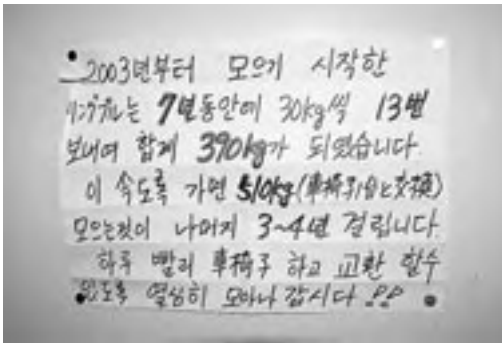 2003년부터 모으기 시작한
リングプル는 7년동안에 30kg씩 13번
보내여 합계 390kg가 되였습니다.
이 속도록 가면 510kg(車椅子1台と交換)
모으는것이 나머지 3~4년 걸립니다
하루 빨리 車椅子 하고 교환 할수
있도록 열심히 모아나 갑시다 !!